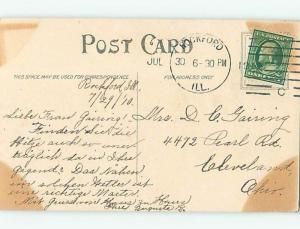 POST CARD
ROCKFORD
JUL 30 6-30 PM
ILL.
U.S. POSTAGE
THIS SPACE MAY BE USED FOR CORRESPONDENCE.
FOR ADDRESS ONLY
Rockford, Ill.
7/29/10.
Liebe Frau Gairing!
Finden Sie die
Hitze auch so uner-
träglich so in Ihre
Gegend? Das Nähen
im solchen Wetter ist
eine richtige Marter.
Mit Gruss von Haus zu Haus
Ihre Auguste
Mrs. D. C. Gairing
4472 Pearl Rd.
Cleveland,
Ohio.